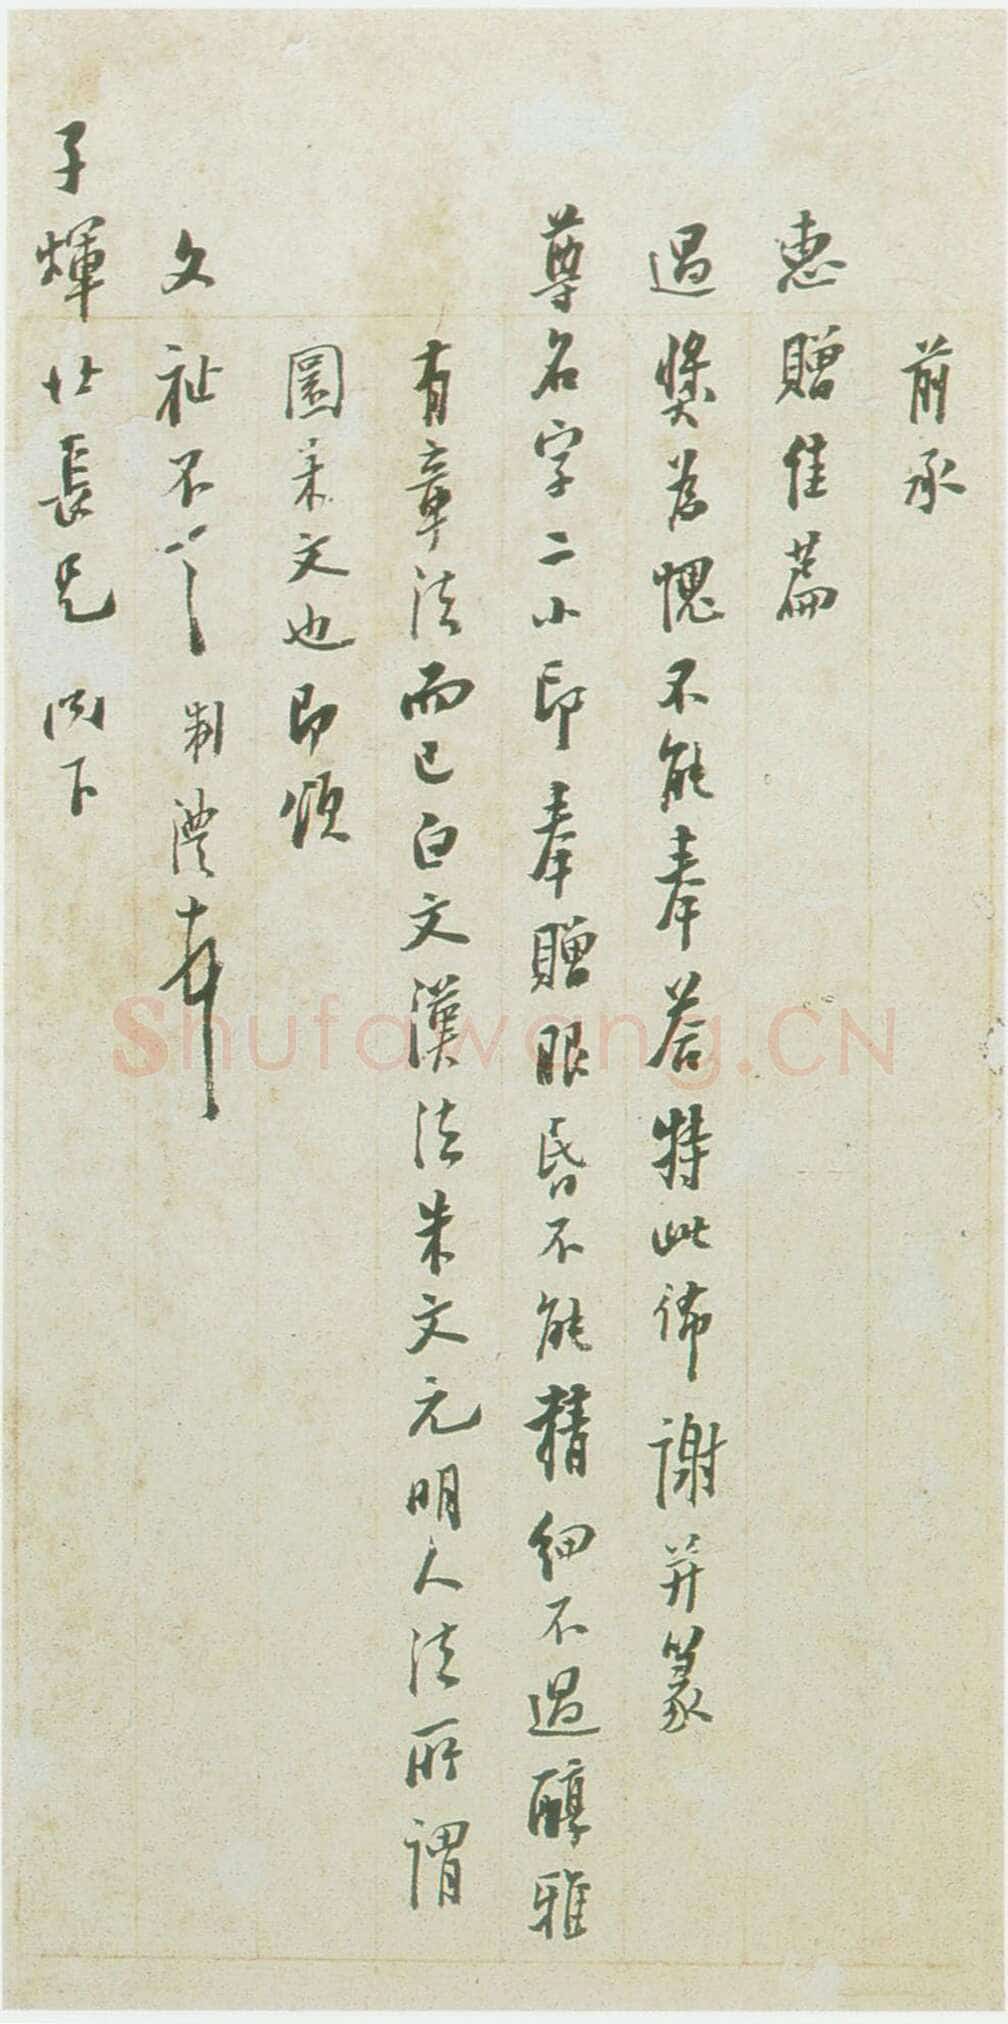 前承
惠贈佳篇
過獎為愧不能奉荅特此佈謝并篆
尊名字二小印奉贈眼昏不能精細不過醇雅
有章法而已白文漢法朱文元明人法所謂
圓朱文也即頌
文祉不 制澧
子煇世長兄 閣下
Shufawang.CN